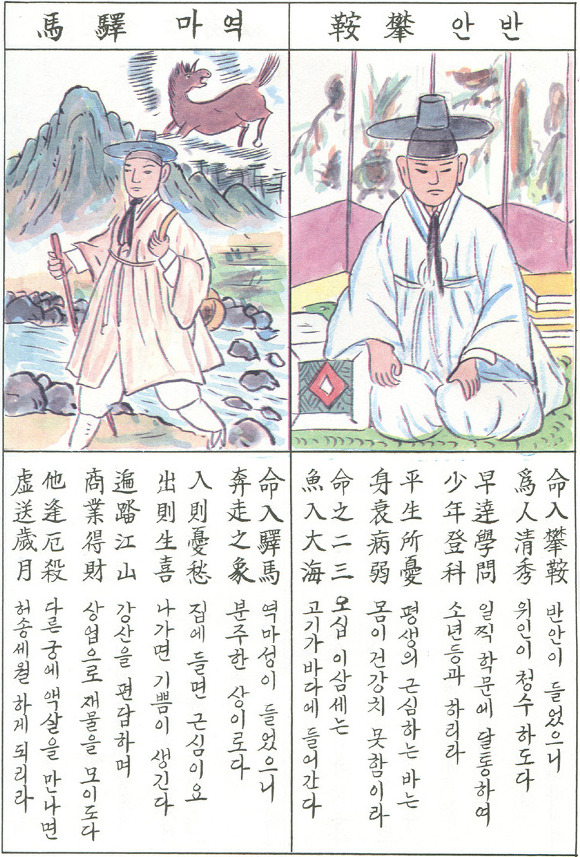 반안 攀鞍
命入攀鞍 반안이 들었으니
爲人清秀 위인이 청수하도다
早達學問 일찍 학문에 달통하여
少年登科 소년등과 하리라
平生所憂 평생의 근심하는 바는
身衰病弱 몸이 건강치 못함이라
命之二三 오십 이삼세는
魚入大海 고기가 바다에 들어간다
역마 驛馬
命入驛馬 역마성이 들었으니
奔走之象 분주한 상이로다
入則憂愁 집에 들면 근심이요
出則生喜 나가면 기쁨이 생긴다
遍踏江山 강산을 편답하며
商業得財 상업으로 재물을 모이도다
他逢厄殺 다른 궁에 액살을 만나면
虛送歲月 허송세월 하게 되리라